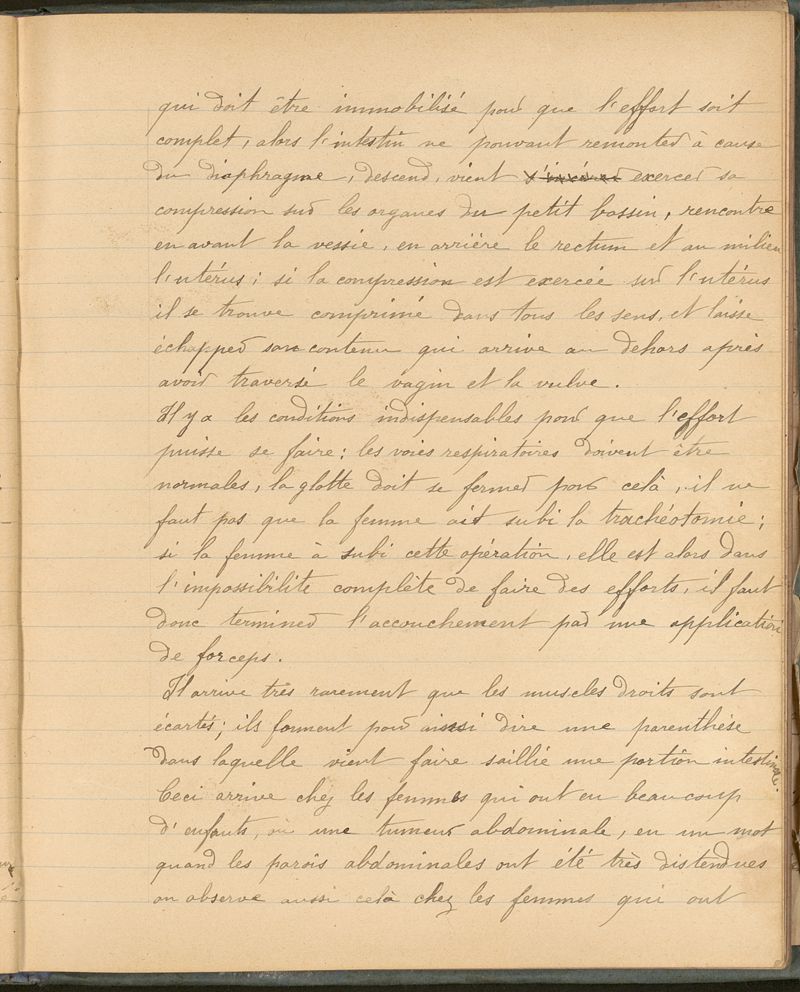 qui doit être immobilisé pour que l'effort soit
complet, alors l'intestin ne pouvant remonter à cause
du diaphragme, descend, vient exercer sa
compression sur les organes du petit bassin, rencontre
en avant la vessie, en arrière le rectum et au milieu
l'utérus; si la compression est exercée sur l'utérus
il se trouve comprimé dans tous les sens, et laisse
échapper son contenu qui arrive au dehors après
avoir traversé le vagin et la vulve.
Il y a les conditions indispensables pour que l'effort
puisse se faire: les voies respiratoires doivent être
normales, la glotte doit se fermer pour celà, il ne
faut pas que la femme ait subi la trachéotomie;
si la femme à subi cette opération, elle est alors dans
l'impossibilité complète de faire des efforts, il faut
donc terminer l'accouchement par une application
de forceps.
Il arrive très rarement que les muscles droits sont
écartés; ils forment pour ainsi dire une parenthèse
dans laquelle vient faire saillie une portion intestinale.
Ceci arrive chez les femmes qui ont eu beaucoup
d'enfants, ou une tumeur abdominale, en un mot
quand les parois abdominales ont été très distendues
on observe aussi celà chez les femmes qui ont